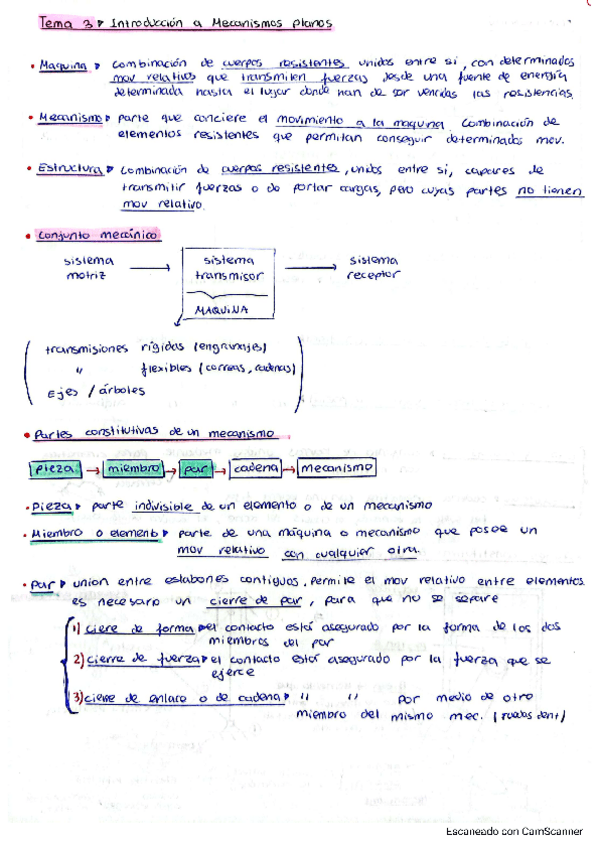 Tema 3 Introducción a Mecanismos planos
• Maquina combinación de cuerpos resistentes unidos entre si, con determinados
mov relativos que transmiten fuerzas desde una fuente de energía
determinada hasta el lugar donde han de ser vencidas las resistencias.
• Mecanismo parte que conciere el movimiento a la maquina combinación de
elementos resistentes que permitan conseguir determinados mov.
• Estructura combinación de cuerpos resistentes, unidos entre si, capaces de
transmitir fuerzas o de portar cargas, pero cuyas partes no tienen
mov relativo.
• Conjunto mecánico
sistema motriz → sistema transmisor → sistema receptor
MAQUINA
transmisiones rígidas (engranajes)
" flexibles (correas, cadenas)
Ejes / árboles
• Partes constitutivas de un mecanismo
pieza → miembro → par → cadena → mecanismo
• Pieza parte indivisible de un elemento o de un mecanismo
• Miembro o elemento parte de una máquina o mecanismo que posee un
mov relativo con cualquier otra.
• Par union entre eslabones contiguos, permite el mov relativo entre elementos
es necesaro un cierre de par, para que no se separe
1) ciere de forma el contacto está asegurado por la forma de los dos
miembros del par
2) cierre de fuerza el contacto está asegurado por la fuerza que se
ejerce
3) cierre de enlace o de cadena " " por medio de otro
miembro del mismo mec. (ruedas dent)
Escaneado con CamScanner